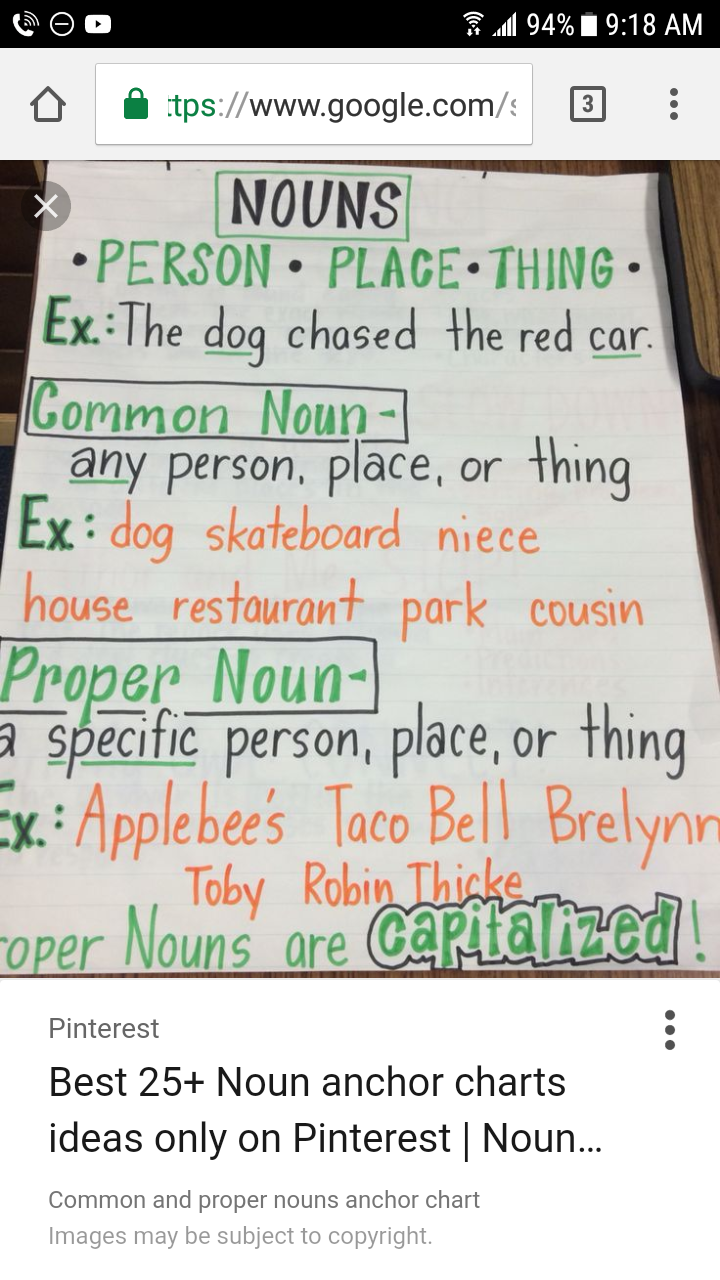 94% 9:18 AM
ttps://www.google.com/s
3
NOUNS
• PERSON • PLACE • THING •
Ex.: The dog chased the red car.
Common Noun-
any person, place, or thing
Ex: dog skateboard niece
house restaurant park cousin
Proper Noun-
a specific person, place, or thing
Ex.: Applebee's Taco Bell Brelynn
Toby Robin Thicke
roper Nouns are capitalized!
Pinterest
Best 25+ Noun anchor charts
ideas only on Pinterest | Noun...
Common and proper nouns anchor chart
Images may be subject to copyright.